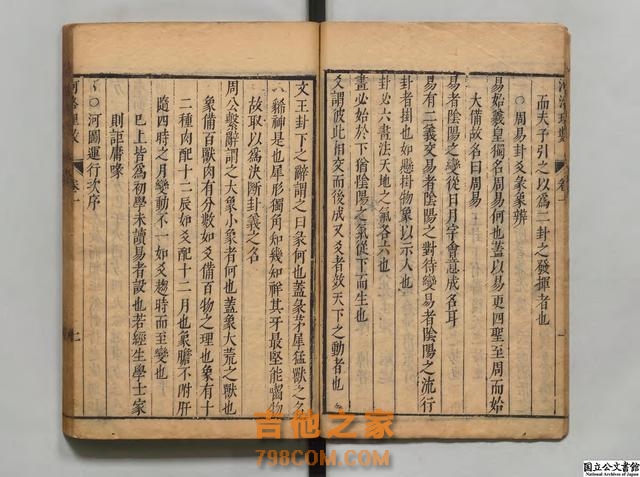 而夫子引之以爲二卦之發揮者也
○周易卦爻彖象辨
易始羲皇獨名周易何也蓋以易更四聖至周而始
大備故名曰周易
易者陰陽之變從日月字會意成名耳
易有二義交易者陰陽之對待變易者陰陽之流行
卦者掛也如懸掛物象以示人也
卦必六畫法天地之氣各六也
畫必始於下猶陰陽之氣從下而生也
爻謂彼此相交而後成又爻者效天下之動者也
文王卦下之辭謂之曰彖何也蓋彖茅犀猛獸之名
豨神是也犀形獨角知幾知祥其牙最堅能嚙物
故取以爲決斷卦義之名
周公繫辭謂之大象小象者何也蓋象大荒之獸也
象備百獸肉有分數如爻備百物之理也象有十
二種肉配十二辰如爻配十二月也象膽不附肝
隨四時之月變動不一如爻趨時而至變也
已上皆爲初學未讀易者設也若經生學士家
則詎庸喙
○河圖運行次序
河洛理數
卷一
吉他之家
798COM.COM
国立公文書館
National Archives of Japan